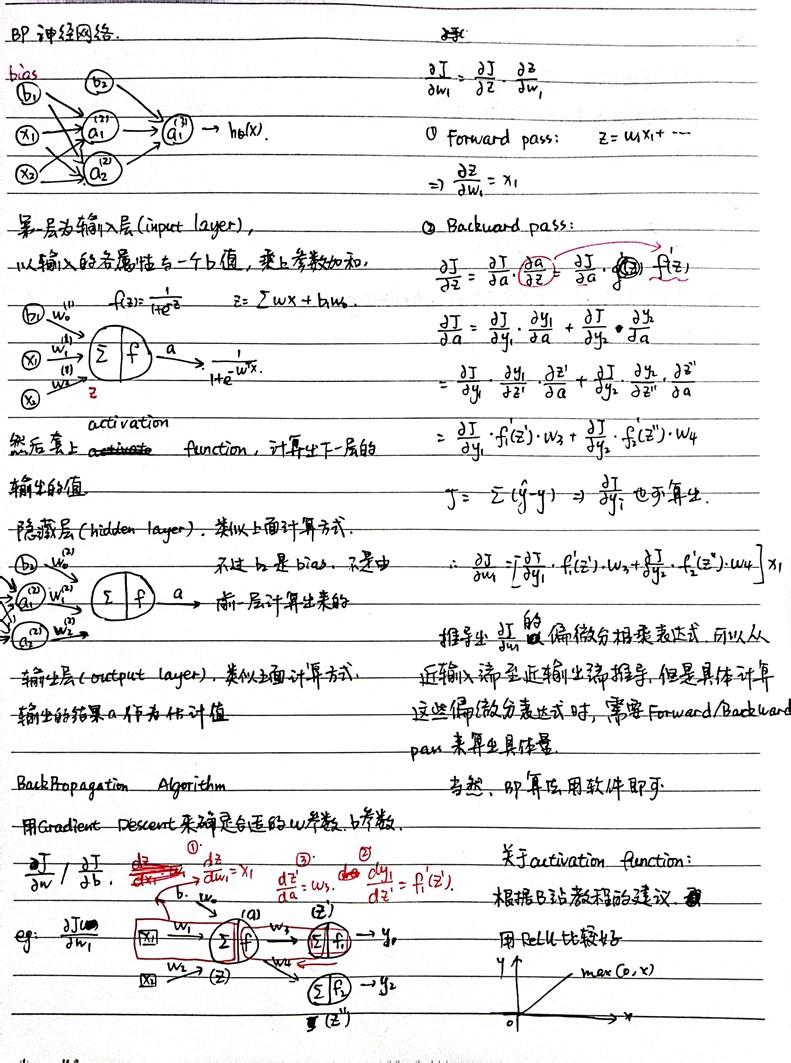 BP 神经网络.
bias
b₁ b₂
x₁ a₁⁽²⁾ a₁⁽³⁾ → hθ(x).
x₂ a₂⁽²⁾
第一层为输入层(input layer),
以输入的各属性与一个b值, 乘上参数加和,
f(z)=1/(1+e^-z) z=Σwx+b₁w₀.
b₁ w₀⁽¹⁾
x₁ w₁⁽¹⁾ Σ f a 1/(1+e^-wᵀx).
x₂ w₂⁽¹⁾ z
activation
然后套上 function, 计算出下一层的
输出的值
隐藏层(hidden layer). 类似上面计算方式.
b₂ w₀⁽²⁾ 不过 b₂ 是bias. 不是由
a₁⁽²⁾ w₁⁽²⁾ Σ f a 前一层计算出来的
a₂⁽²⁾ w₂⁽²⁾
输出层(output layer), 类似上面计算方式.
输出的结果a作为估计值
BackPropagation Algorithm
用Gradient Descent来确定合适的w参数. b参数.
∂J/∂w / ∂J/∂b. ① dz/dw₁=x₁ ③ dz'/da=w₃. ② dy₁/dz'=f₁'(z').
b. w₀ (a) (z')
eg: ∂J/∂w₁ x₁ w₁ Σ f w₃ Σ f₁ → y₁
x₂ w₂ (z) w₄ Σ f₂ → y₂
(z'')
∂J/∂w₁ = ∂J/∂z · ∂z/∂w₁
① Forward pass: z=w₁x₁+⋯
⇒ ∂z/∂w₁=x₁
② Backward pass:
∂J/∂z = ∂J/∂a · ∂a/∂z = ∂J/∂a · f'(z)
∂J/∂a = ∂J/∂y₁ · ∂y₁/∂a + ∂J/∂y₂ · ∂y₂/∂a
= ∂J/∂y₁ · ∂y₁/∂z' · ∂z'/∂a + ∂J/∂y₂ · ∂y₂/∂z'' · ∂z''/∂a
= ∂J/∂y₁ · f₁'(z') · w₃ + ∂J/∂y₂ · f₂'(z'') · w₄
J = Σ(ŷ-y) ⇒ ∂J/∂yᵢ 也可算出.
∴ ∂J/∂w₁ = [∂J/∂y₁ · f₁'(z') · w₃ + ∂J/∂y₂ · f₂'(z'') · w₄] x₁
推导出 ∂J/∂w₁ 的 偏微分相乘表达式. 可以从
近输入端至近输出端推导, 但是具体计算
这些偏微分表达式时, 需要Forward/Backward
pass 来算出具体量.
当然, BP算法用软件即可
关于activation function:
根据B站教程的建议.
用ReLU比较好
y max(0,x)
0 x